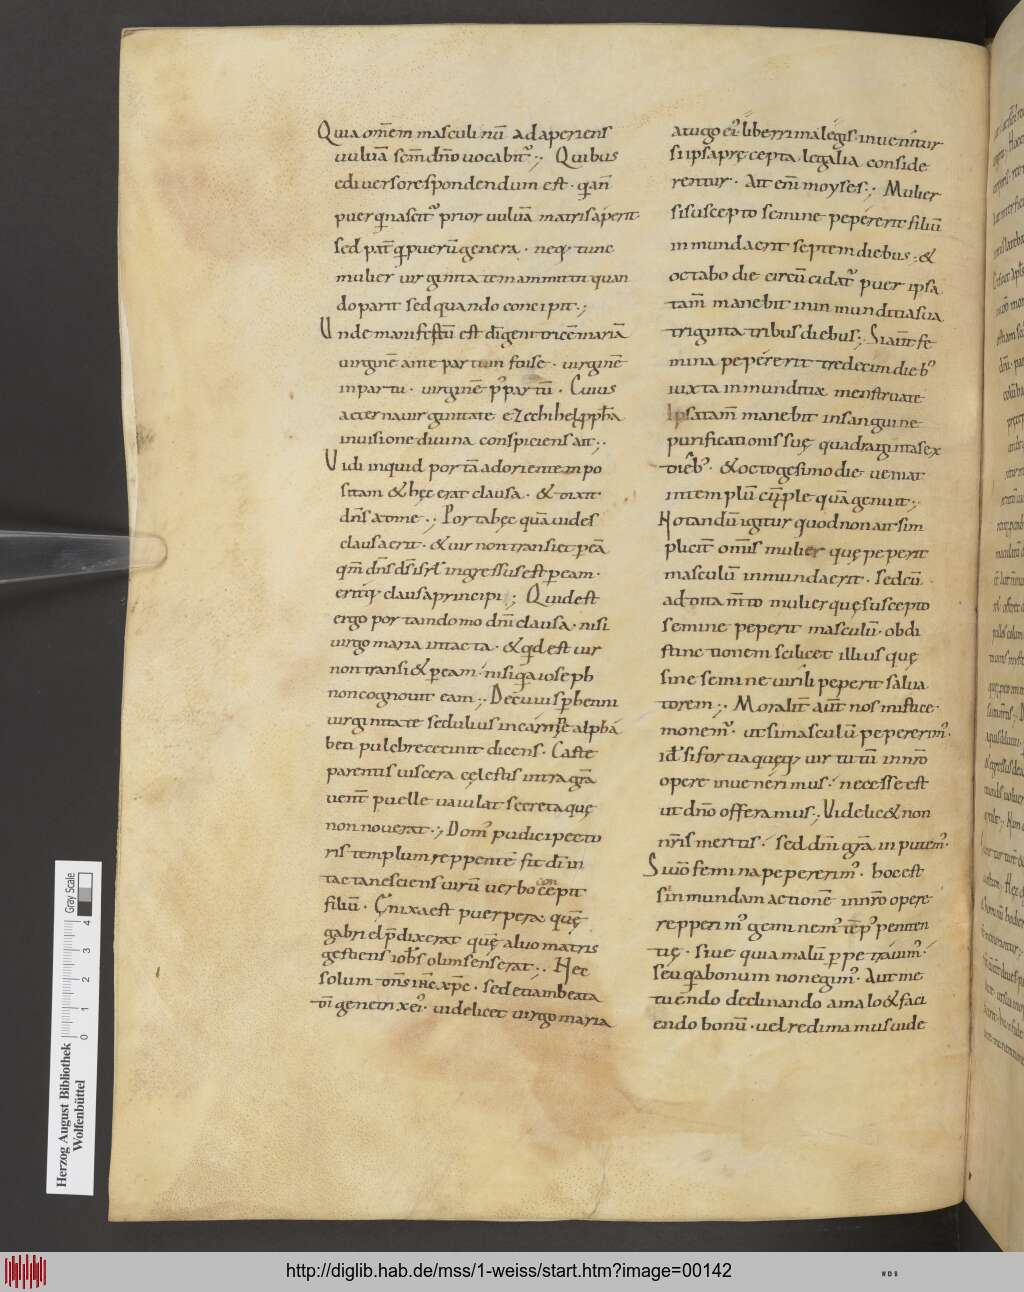 Quia om̄em masculinū adaperiens
uuluā sēm dn̄o uocabit᷑ ·; Quibus
ediuerso respondendum est · q̄ an̄
puer qui nascit᷑ prior uuluā matris aperit
sed pat̄ q puerū genera · neq; tunc
mulier uirginitatem ammittit quan
do parit sed quando concipit ·;
Unde manifestū est d̄i genitricē mariā
uirginē ante partum fuisse · uirginē
in partu · uirginē p᷒ partū · Cuius
aeternauirginitate ezechihel ppha
inuisione diuina conspiciens ait ·;
Uidi inquid portā adorientem po
sitam & hęc erat clausa · & dixit
dn̄s ad me ·; Porta hęc quā uides
clausa erit · & uir non transiet p eā
qm̄ dn̄s d̄s isrl ingressus est p eam ·
eritq; clausa principi ·; Quid est
ergo porta in domo dn̄i clausa · nisi
uirgo maria intacta · & qd est uir
non transi& p eam · nisi qa ioseph
non cognouit eam ·; De cuius phenni
uirginitate sedulius in carmīe alpha
beti pulchre cecinit dicens · Caste
parentis uiscera cęlestis intra grā
uent̄ puelle uaiulat secreta quę
non nouerat ·; Dom᷒ pudici pecto
ris templum reppente fit d̄i in
tacta nesciens uirū uerbo concepit
filiū · Ęnixa est puerpera quē
gabriel p̄dixerat quē aluo matris
gestiens ioh̄s olim senserat ·; Hec
solum dn̄s ih̄c xp̄c · sed etiam beata
d̄i genetrix ei᷒ · uidelicet uirgo maria
a iugo ei᷒ liberrima legis · inuenitur
si ipsa pręcepta legalia conside
rentur · Ait eni moyses ·; Mulier
si suscepto semine pepererit filiū
inmunda erit septem diebus · &
octabo die circūcidat᷑ puer ipsa
tam̄ manebit in inmunditia sua
triginta tribus diebus ·; Si aut̄ fe
mina pepererit tredecim dieb᷒
iuxta inmunditiæ menstruate
Ipsa tam̄ manebit in sanguine
purificationis suę quadraginta sex
dieb᷒ · & octogesimo die ueniat
in templū cū ple quā genuit ·;
Notandū igitur quod non ait sim
plicit̄ omīs mulier quę peperit
masculū inmunda erit · sed cū
additam̄to mulier quę suscepto
semine peperit masculū · ob di
stinctionem scilicet illius quę
sine semine uirili peperit salua
torem ·; Moralit̄ aut̄ nos mistice
monem᷒ · ut si masculū pepererim᷒ ·
id est si fortia quęq; uir tutū in n̄ro
opere inuenerimus · necesse est
ut dn̄o offeramus ·; Videlic& non
n̄ris meritis · sed dn̄i grā inputem᷒ ·
Si uero femina pepererim᷒ · hoc est
sin mundam actionē in n̄ro opere
repperim᷒ geminem᷒ temp᷒ peniten
tię · siue quia malū p petrauim᷒ ·
seu q̄a bonum non egim᷒ · Aut me
tuendo declinando a malo & faci
endo bonū · uel redimamus uide
Herzog August Bibliothek
Wolfenbüttel
Gray Scale
0 1 2 3 4
http://diglib.hab.de/mss/1-weiss/start.htm?image=00142